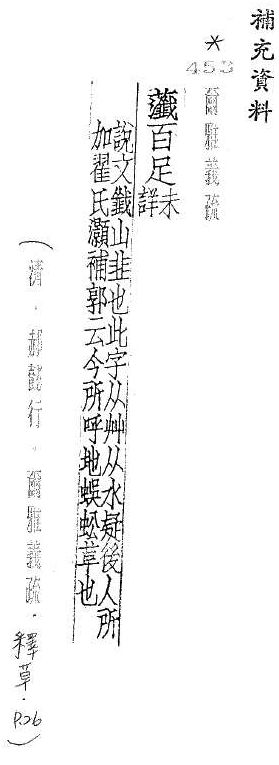 補充資料
*
453
爾雅義疏
虃百足未詳
說文韱山韭也此字从艸从水疑後人所
加翟氏灝補郭云今所呼地蜈蚣草也
(清.郝懿行.爾雅義疏.釋草.P.26)